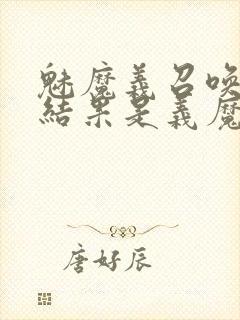 魅魔義召喚
結果是義魔
唐好辰